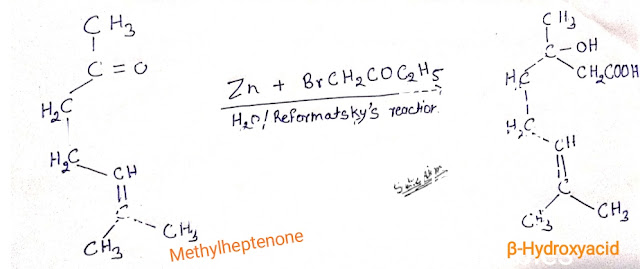 CH3
C = O
H2C
H2C
CH
C
CH3
CH3
Methylheptenone
Zn + BrCH2COC2H5
H2O / Reformatsky's reaction
CH3
C - OH
CH2COOH
H2C
H2C
CH
C
CH3
CH3
β-Hydroxyacid